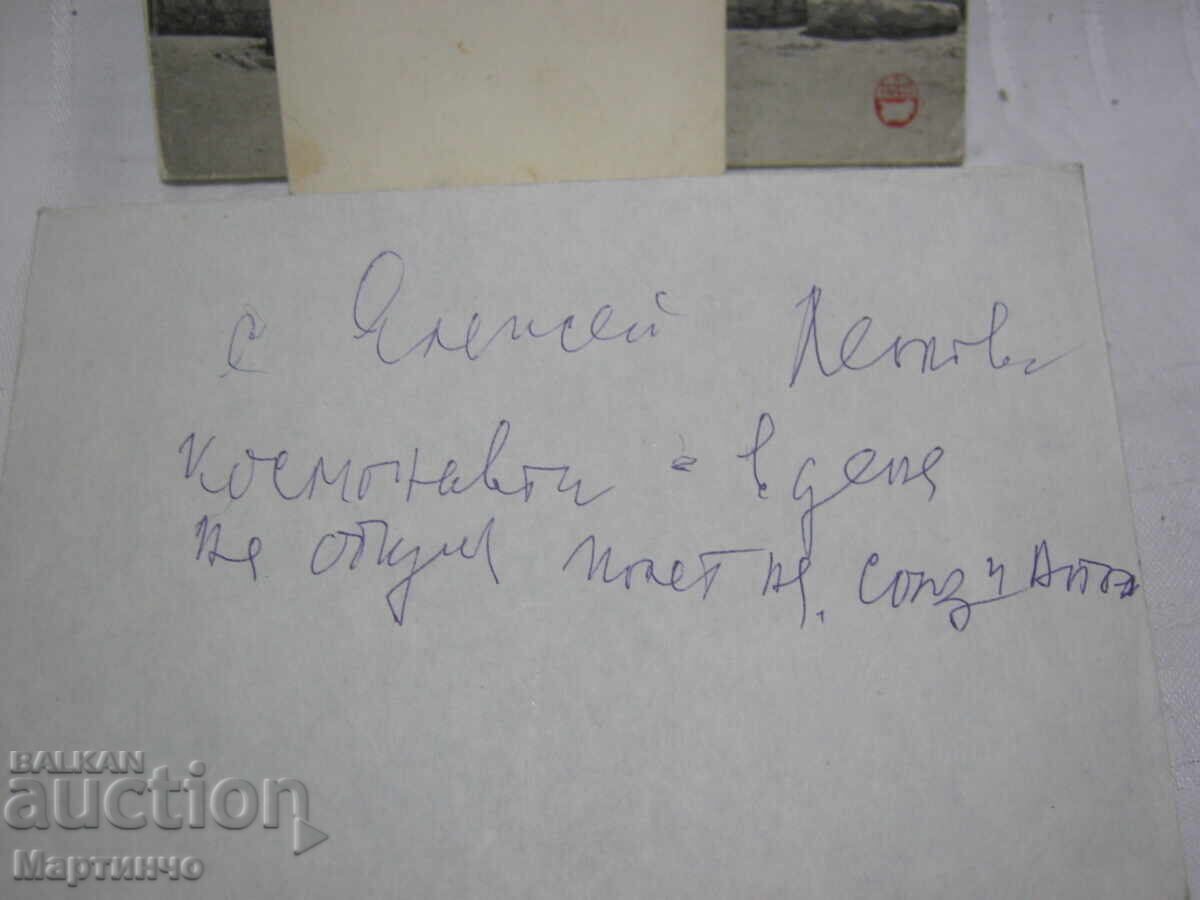 с Алексей Леонов
космонавти - в деня
на откри полет на. Союз и Апол
BALKAN
auction
Мартинчо